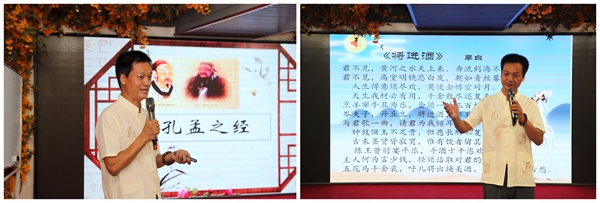 孔孟之经
《将进酒》 李白
君不见，黄河之水天上来，奔流到海不
君不见，高堂明镜悲白发，朝如青丝暮
人生得意须尽欢，莫使金樽空对月。
天生我材必有用，千金散尽还复
烹羊宰牛且为乐，会须一 百
岑夫子，丹丘生，将进酒
与君歌一曲，请君为我倾耳
钟鼓馔玉不足贵，但愿长醉不复
古来圣贤皆寂寞，惟有饮者留其
陈王昔时宴平乐，斗酒十千恣欢
主人何为言少钱，径须沽取对君酌
五花马千金裘，呼儿将出换美酒， 愁